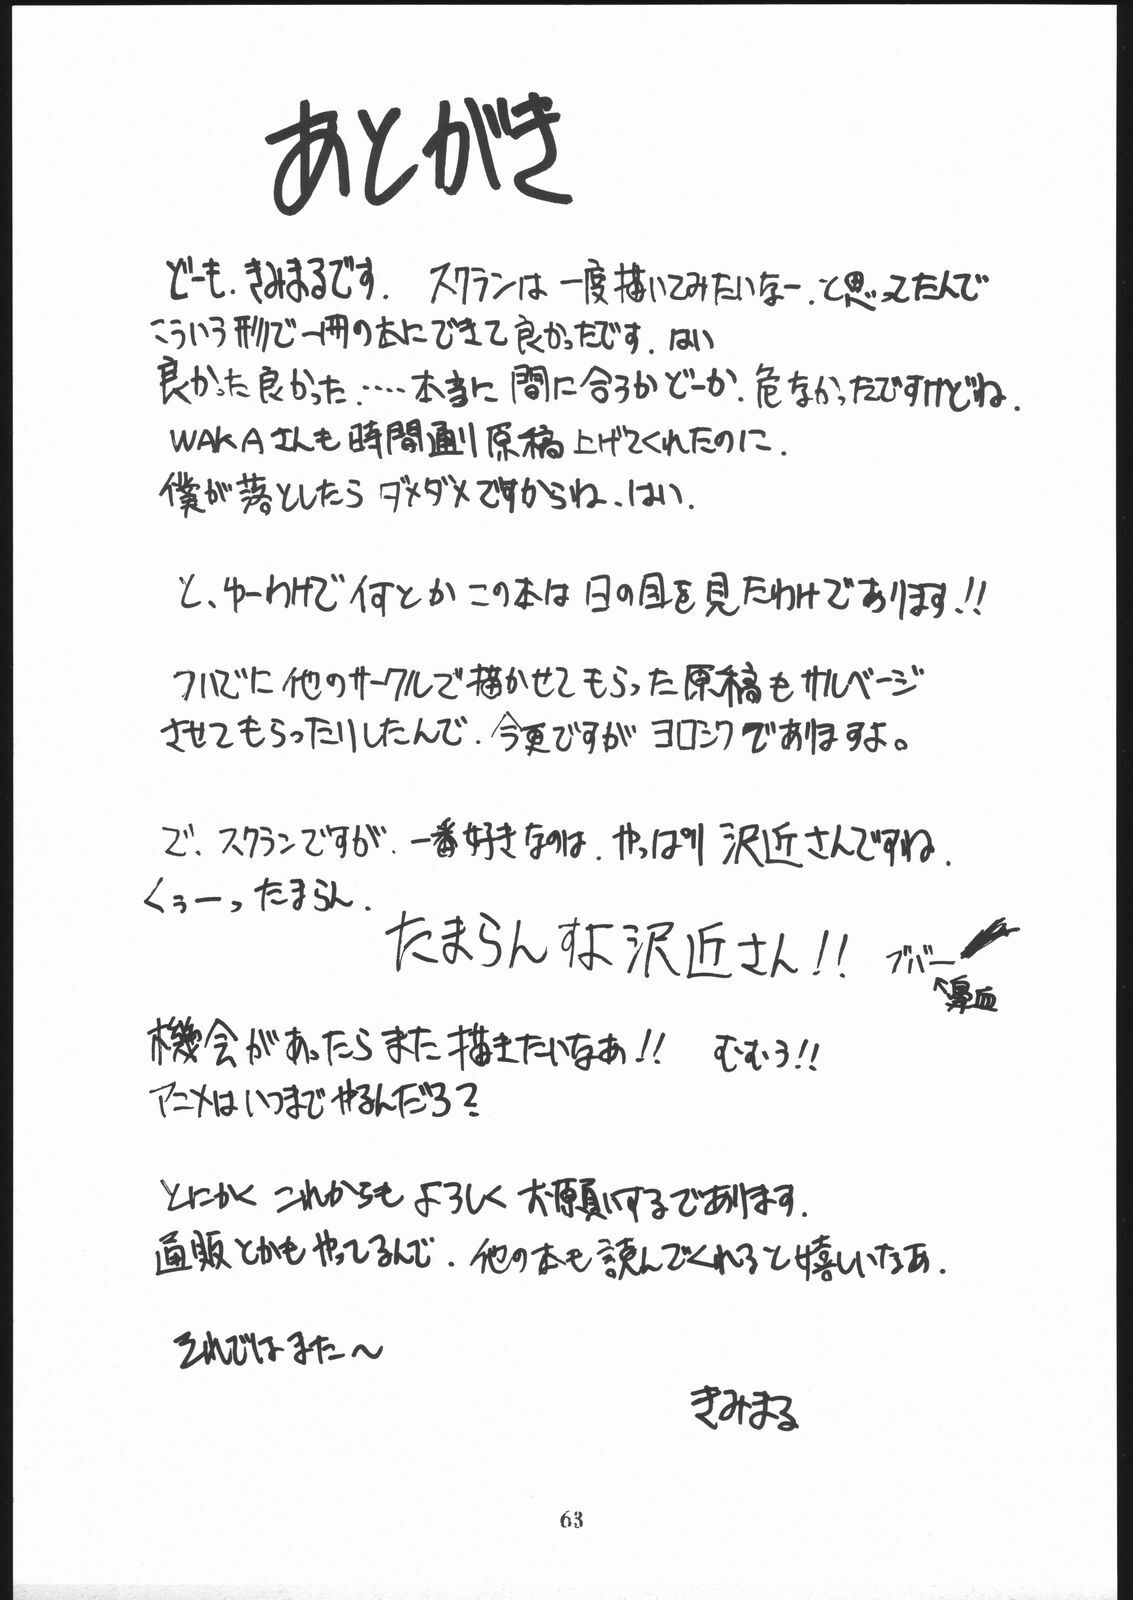 あとがき
どーも、きみまるです. スクランは一度描いてみたいなー、と思ってたんで
こういう形で一冊の本にできて良かったです、はい
良かった良かった‥‥本当に間に合うかどーか、危なかったですけどね.
WAKAさんも時間通り原稿上げてくれたのに、
僕が落としたらダメダメですからね、はい.
と、ゆーわけで何とかこの本は日の目を見たわけであります!!
ついでに他のサークルで描かせてもらった原稿もサルベージ
させてもらったりしたんで、今更ですがヨロシクでありますよ。
で、スクランですが、一番好きなのは、やっぱり沢近さんですね.
くぅーったまらん.
たまらんすよ沢近さん!! ブバー
↑鼻血
機会があったらまた描きたいなあ!! むむう!!
アニメはいつまでやるんだろ?
とにかくこれからもよろしくお願いするであります.
通販とかもやってるんで、他の本も読んでくれると嬉しいなあ.
それではまた〜
きみまる
63